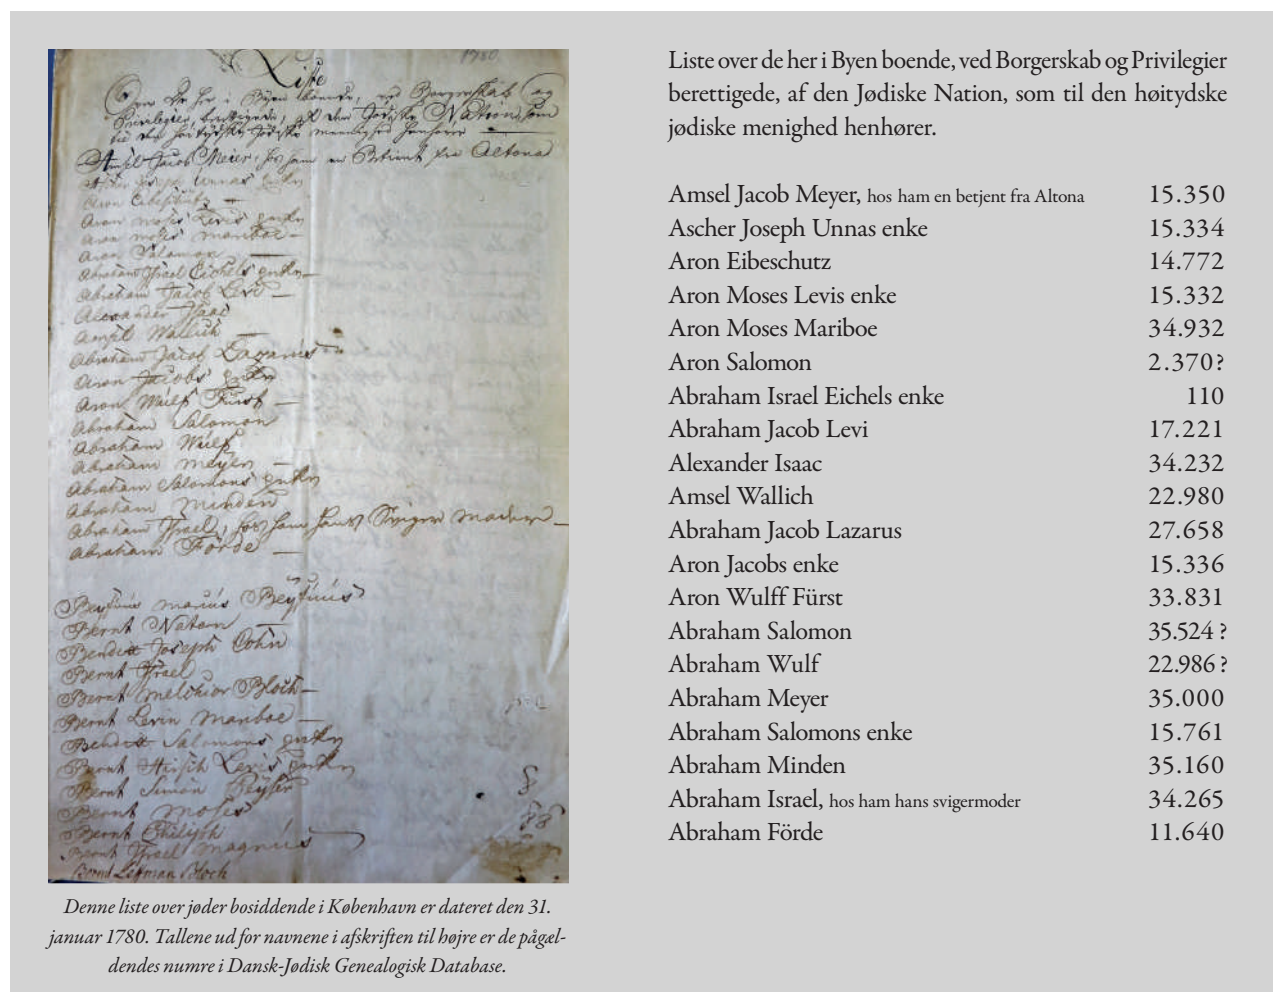 1780
Liste
Over de her i Byen boende, ved Borgerskab og
Privilegier berettigede, af den Jødiske Nation, som
til den høitydske Jødiske meenighed henhører
Amsel Jacob Meier, hos ham en Betient fra Altona
Ascher Joseph Unnas enke
Aron Eibeschütz
Aron Moses Levis enke
Aron Moses Mariboe
Aron Salomon
Abraham Israel Eichels enke
Abraham Jacob Levi
Alexander Isaac
Amsel Wallich
Abraham Jacob Lazarus
Aron Jacobs enke
Aron Wulff Fürst
Abraham Salomon
Abraham Wulf
Abraham Meyer
Abraham Salomons enke
Abraham Minden
Abraham Israel, hos ham hans Sviger Moder
Abraham Förde
Beyfuus Marius Beyfuus
Bernt Natan
Bendix Joseph Cohn
Bernt Israel
Bernt Melchior Bloch
Bernt Levin Mariboe
Bendix Salomons enke
Bernt Hirsch Levis enke
Bernt Simon
Bernt Moses
Bernt Philip
Bernt Israel Magnüs
Bernd Bloch
Denne liste over jøder bosiddende i København er dateret den 31.
januar 1780. Tallene ud for navnene i afskriften til højre er de pågæl-
dendes numre i Dansk-Jødisk Genealogisk Database.
Liste over de her i Byen boende, ved Borgerskab og Privilegier
berettigede, af den Jødiske Nation, som til den høitydske
jødiske menighed henhører.
Amsel Jacob Meyer, hos ham en betjent fra Altona 15.350
Ascher Joseph Unnas enke 15.334
Aron Eibeschutz 14.772
Aron Moses Levis enke 15.332
Aron Moses Mariboe 34.932
Aron Salomon 2.370?
Abraham Israel Eichels enke 110
Abraham Jacob Levi 17.221
Alexander Isaac 34.232
Amsel Wallich 22.980
Abraham Jacob Lazarus 27.658
Aron Jacobs enke 15.336
Aron Wulff Fürst 33.831
Abraham Salomon 35.524 ?
Abraham Wulf 22.986 ?
Abraham Meyer 35.000
Abraham Salomons enke 15.761
Abraham Minden 35.160
Abraham Israel, hos ham hans svigermoder 34.265
Abraham Förde 11.640